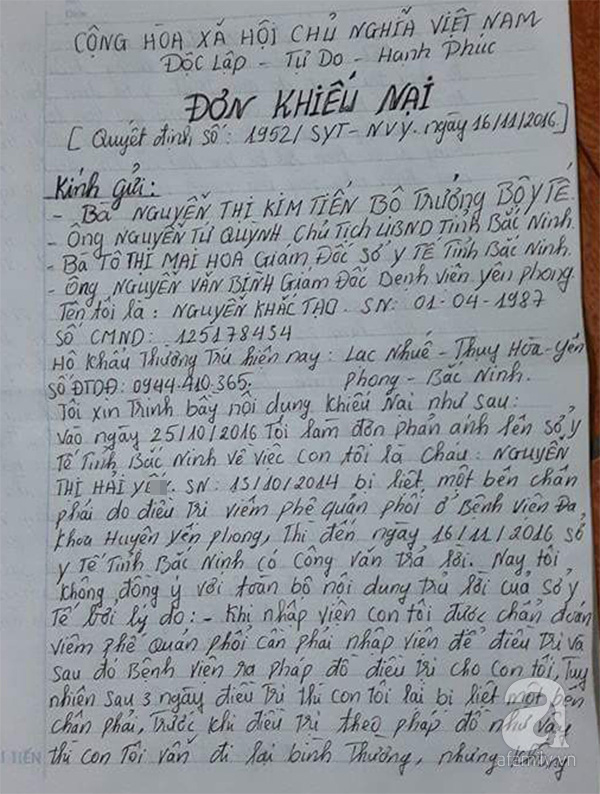 CỘNG HÒA XÃ HỘI CHỦ NGHĨA VIỆT NAM
Độc Lập - Tự Do - Hạnh Phúc
ĐƠN KHIẾU NẠI
[ Quyết định số: 1952/ SYT- NVY. ngày 16/11/2016.]
Kính gửi:
- Bà NGUYỄN THỊ KIM TIẾN Bộ Trưởng BỘ Y TẾ
- Ông NGUYỄN TỬ QUỲNH Chủ Tịch UBND Tỉnh Bắc Ninh.
- Bà TÔ THỊ MAI HOA Giám Đốc Sở Y TẾ Tỉnh Bắc Ninh.
- Ông NGUYỄN VĂN BÌNH Giám Đốc Bệnh Viện Yên Phong
Tên tôi là: NGUYỄN KHẮC TẠO. SN: 01-04-1987
SỐ CMND: 125178454
Hộ Khẩu Thường Trú hiện nay: Lạc Nhuế - Thụy Hòa - Yên
SỐ ĐTDĐ: 0944.410.365. Phong - Bắc Ninh.
Tôi xin Trình bày nội dung khiếu Nại như sau:
Vào ngày 25/10/2016 Tôi làm đơn phản ánh lên sở y
Tế Tỉnh Bắc Ninh về việc con tôi là cháu: NGUYỄN
THỊ HẢI SN: 15/10/2014 bị liệt một bên chân
phải do điều trị viêm phế quản phổi ở Bệnh Viện Đa
khoa Huyện Yên phong, Thì đến ngày 16/11/2016 sở
y Tế Tỉnh Bắc Ninh có Công văn trả lời. Nay tôi
không đồng ý với toàn bộ nội dung trả lời của sở y
Tế bởi lý do: - Khi nhập viện con tôi được chẩn đoán
viêm phế quản phổi cần phải nhập viện để điều trị và
sau đó Bệnh viện ra pháp đồ điều trị cho con tôi, Tuy
nhiên sau 3 ngày điều trị thì con tôi lại bị liệt một bên
chân phải, Trước khi điều trị theo pháp đồ như vậy
thì con Tôi vẫn đi lại bình Thường, nhưng
I TIẾN
a
afamily.vn